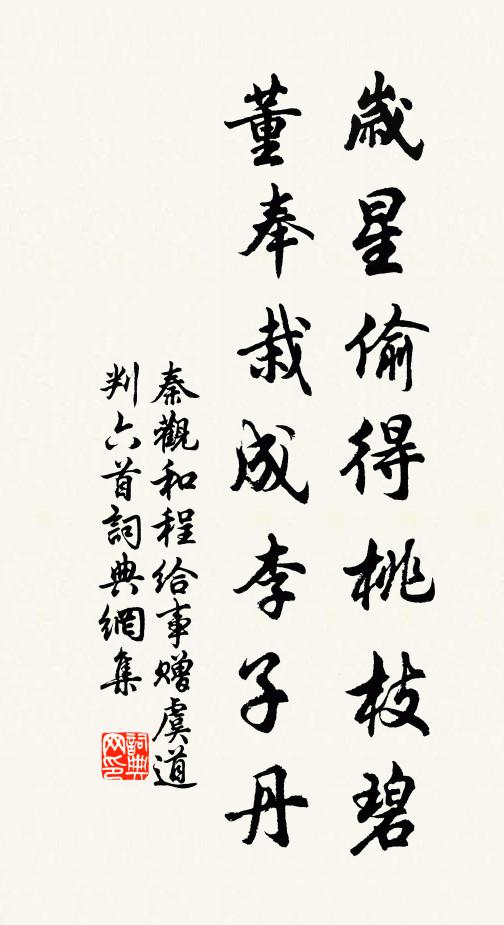 歲星偷得桃枝碧
董奉栽成李子丹
秦觀和程给事赠虞道
判六首詞典網集
詞典网印